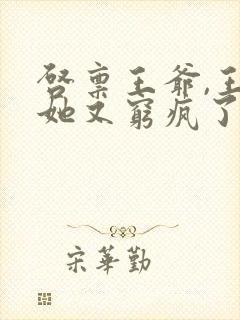 啓稟王爺,王
她又窮瘋了
宋華勤